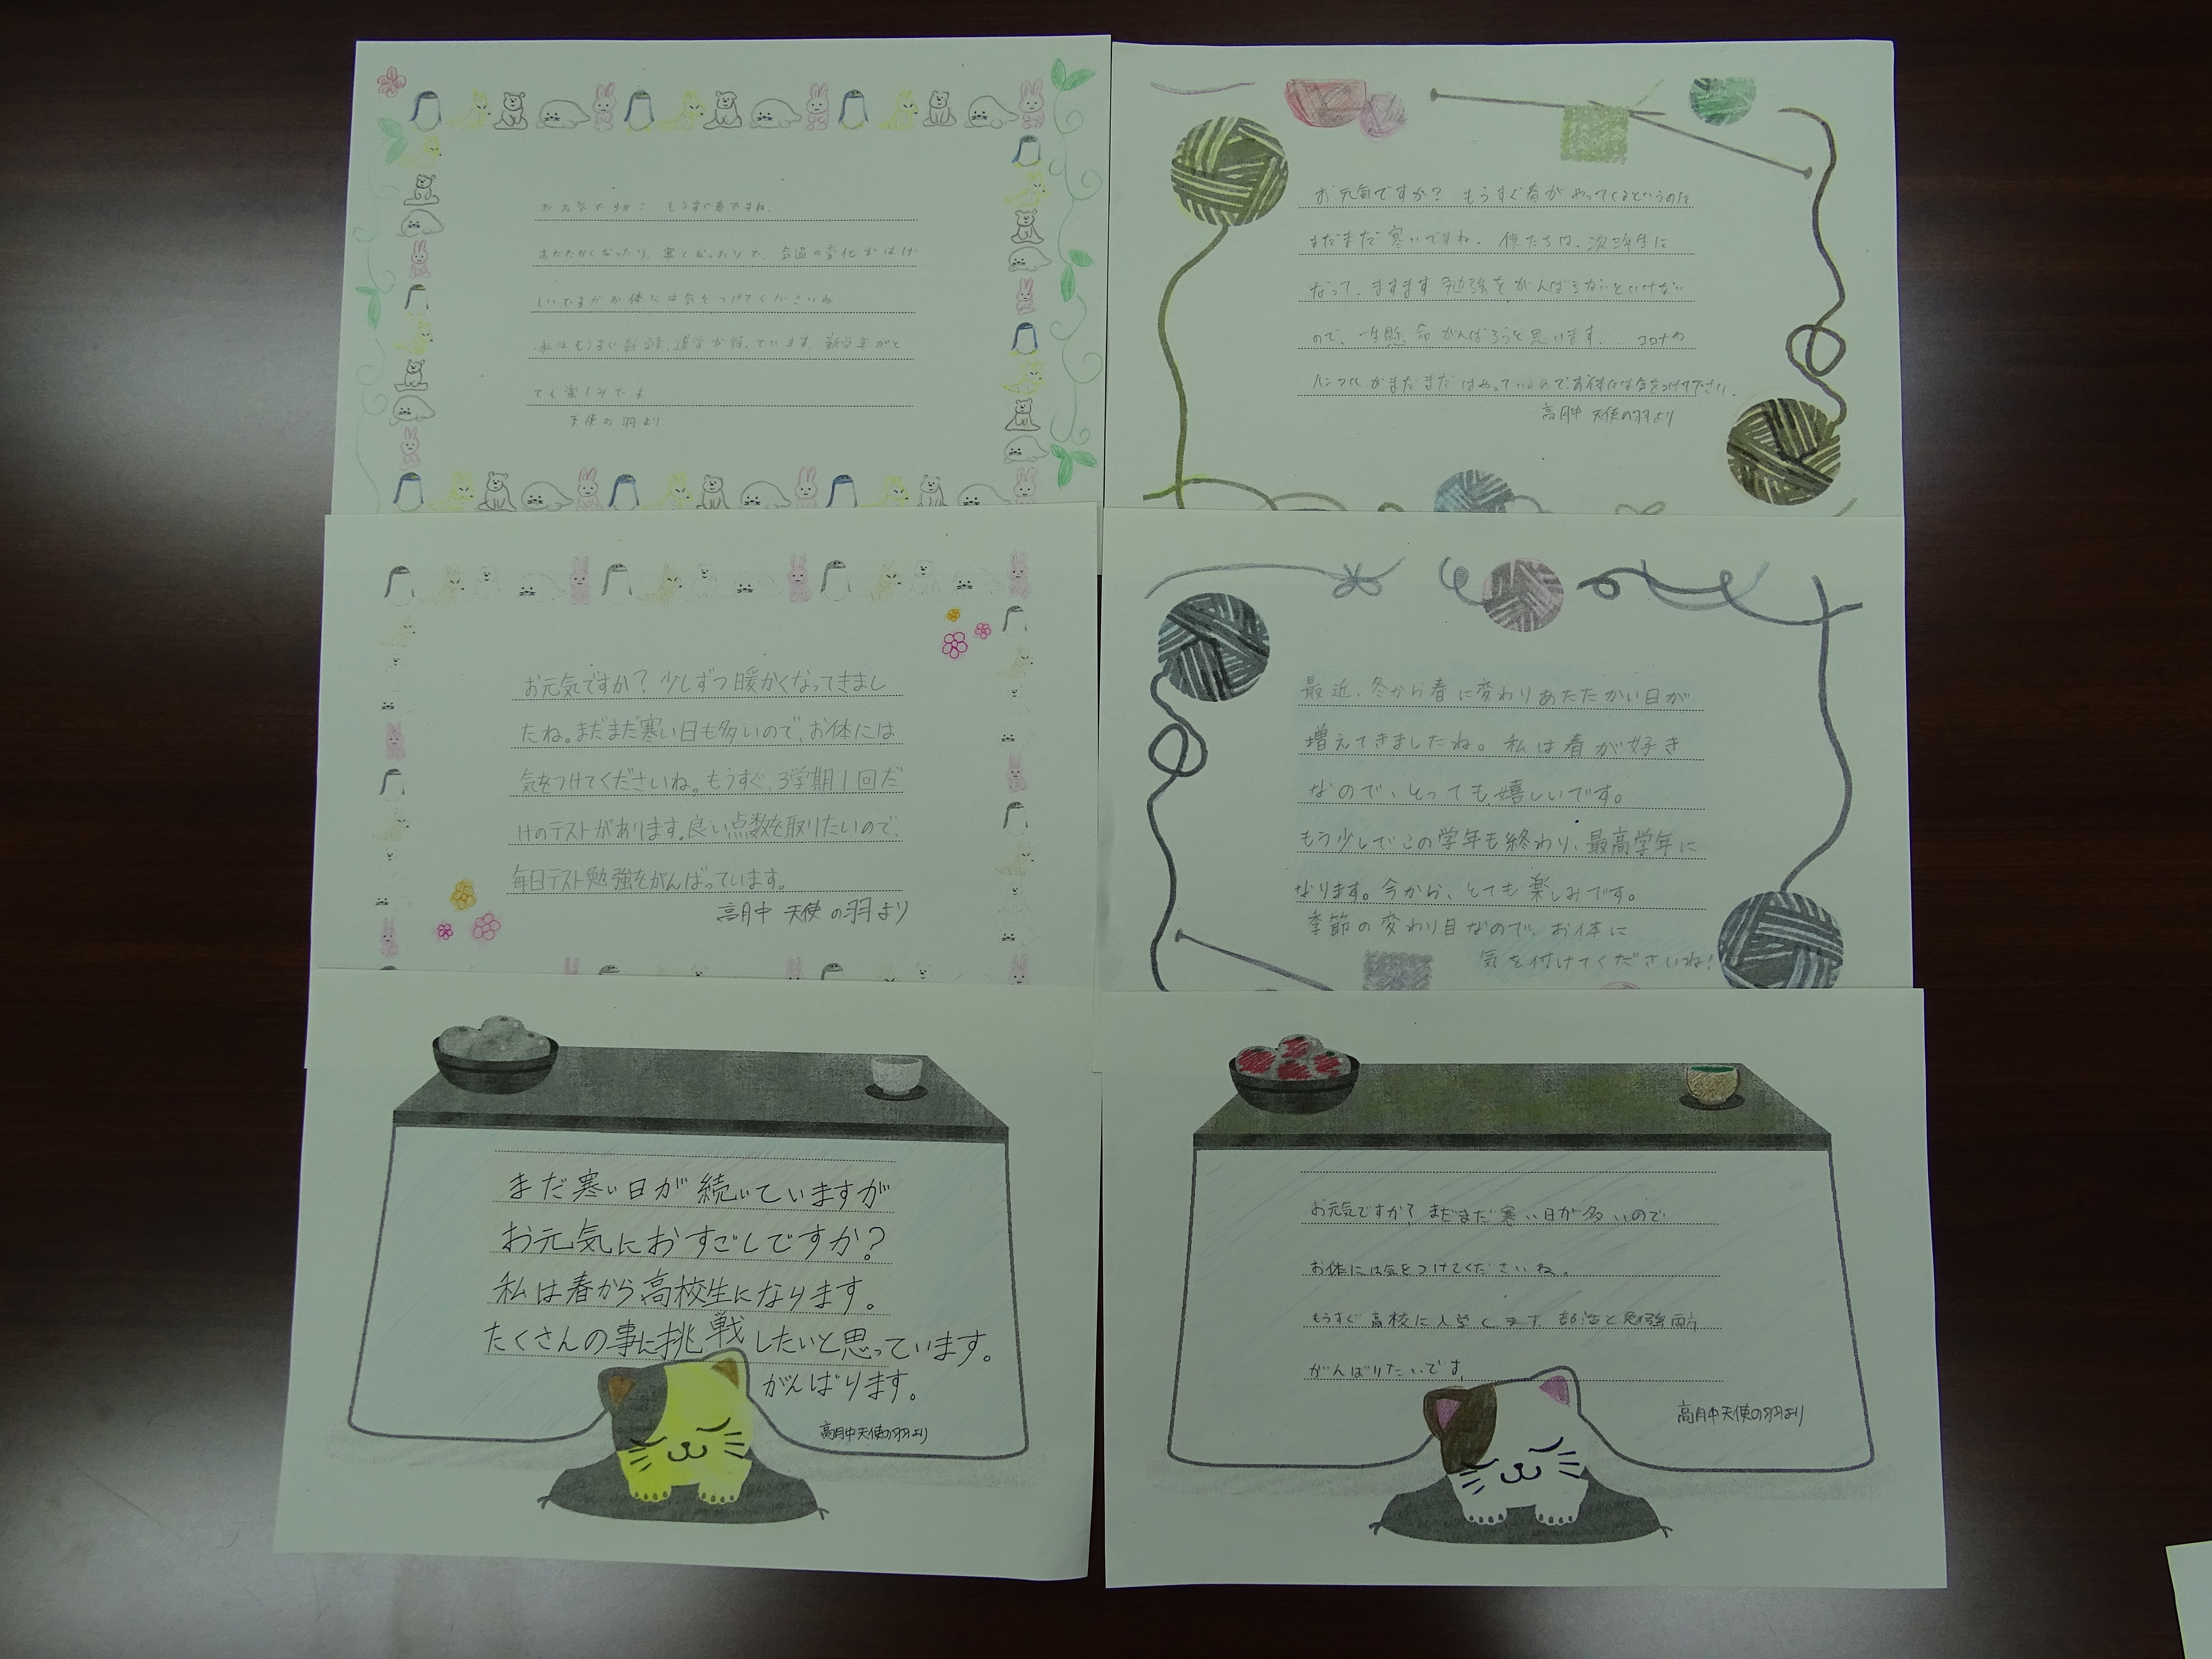 お元気ですか? もうすぐ春ですね。
あたたかくなったり、寒くなったりで、気温の変化がはげ
しいですがお体には気をつけてくださいね
私はもうすぐ新学期、進学が待っています。新学年がと
ても楽しみです
天使の羽より
お元気ですか? もうすぐ春がやってくるというのに
まだまだ寒いですね。僕たちは、次三年生に
なって、ますます勉強をがんばらないといけない
ので、一生懸命がんばろうと思います。コロナや
インフルがまだまだはやっているので、お体には気をつけて下さい。
高月中 天使の羽より
お元気ですか?少しずつ暖かくなってきまし
たね。まだまだ寒い日も多いので、お体には
気をつけてくださいね。もうすぐ、3学期1回だ
けのテストがあります。良い点数を取りたいので、
毎日テスト勉強をがんばっています。
高月中 天使の羽より
最近、冬から春に変わりあたたかい日が
増えてきましたね。私は春が好き
なので、とっても嬉しいです。
もう少しでこの学年も終わり、最高学年に
なります。今から、とても楽しみです。
季節の変わり目なので、お体に
気を付けてくださいね!
まだ寒い日が続いていますが
お元気におすごしですか?
私は春から高校生になります。
たくさんの事に挑戦したいと思っています。
がんばります。
高月中天使の羽より
お元気ですか?まだまだ寒い日が多いので
お体には気をつけてくださいね。
もうすぐ高校に入学します。部活と勉強両方
がんばりたいです。
高月中天使の羽より